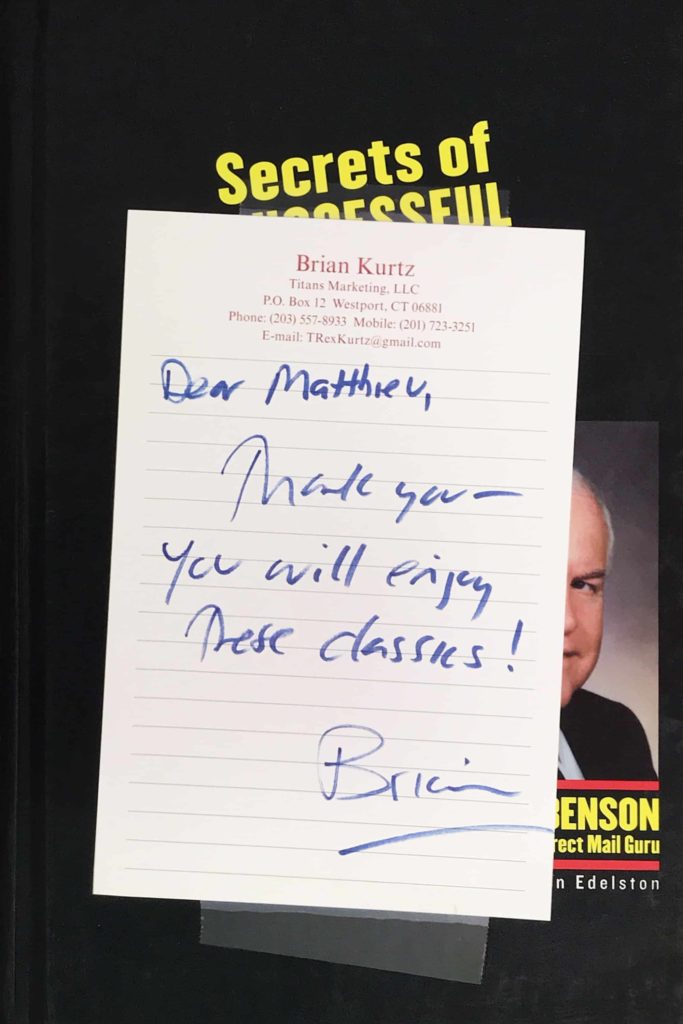 Secrets of
SUCCESSFUL
Brian Kurtz
Titans Marketing, LLC
P.O. Box 12 Westport, CT 06881
Phone: (203) 557-8933 Mobile: (201) 723-3251
E-mail: TRexKurtz@gmail.com
Dear Matthieu,
Thank you—
You will enjoy
These classics!
Brian
BENSON
rect Mail Guru
n Edelston